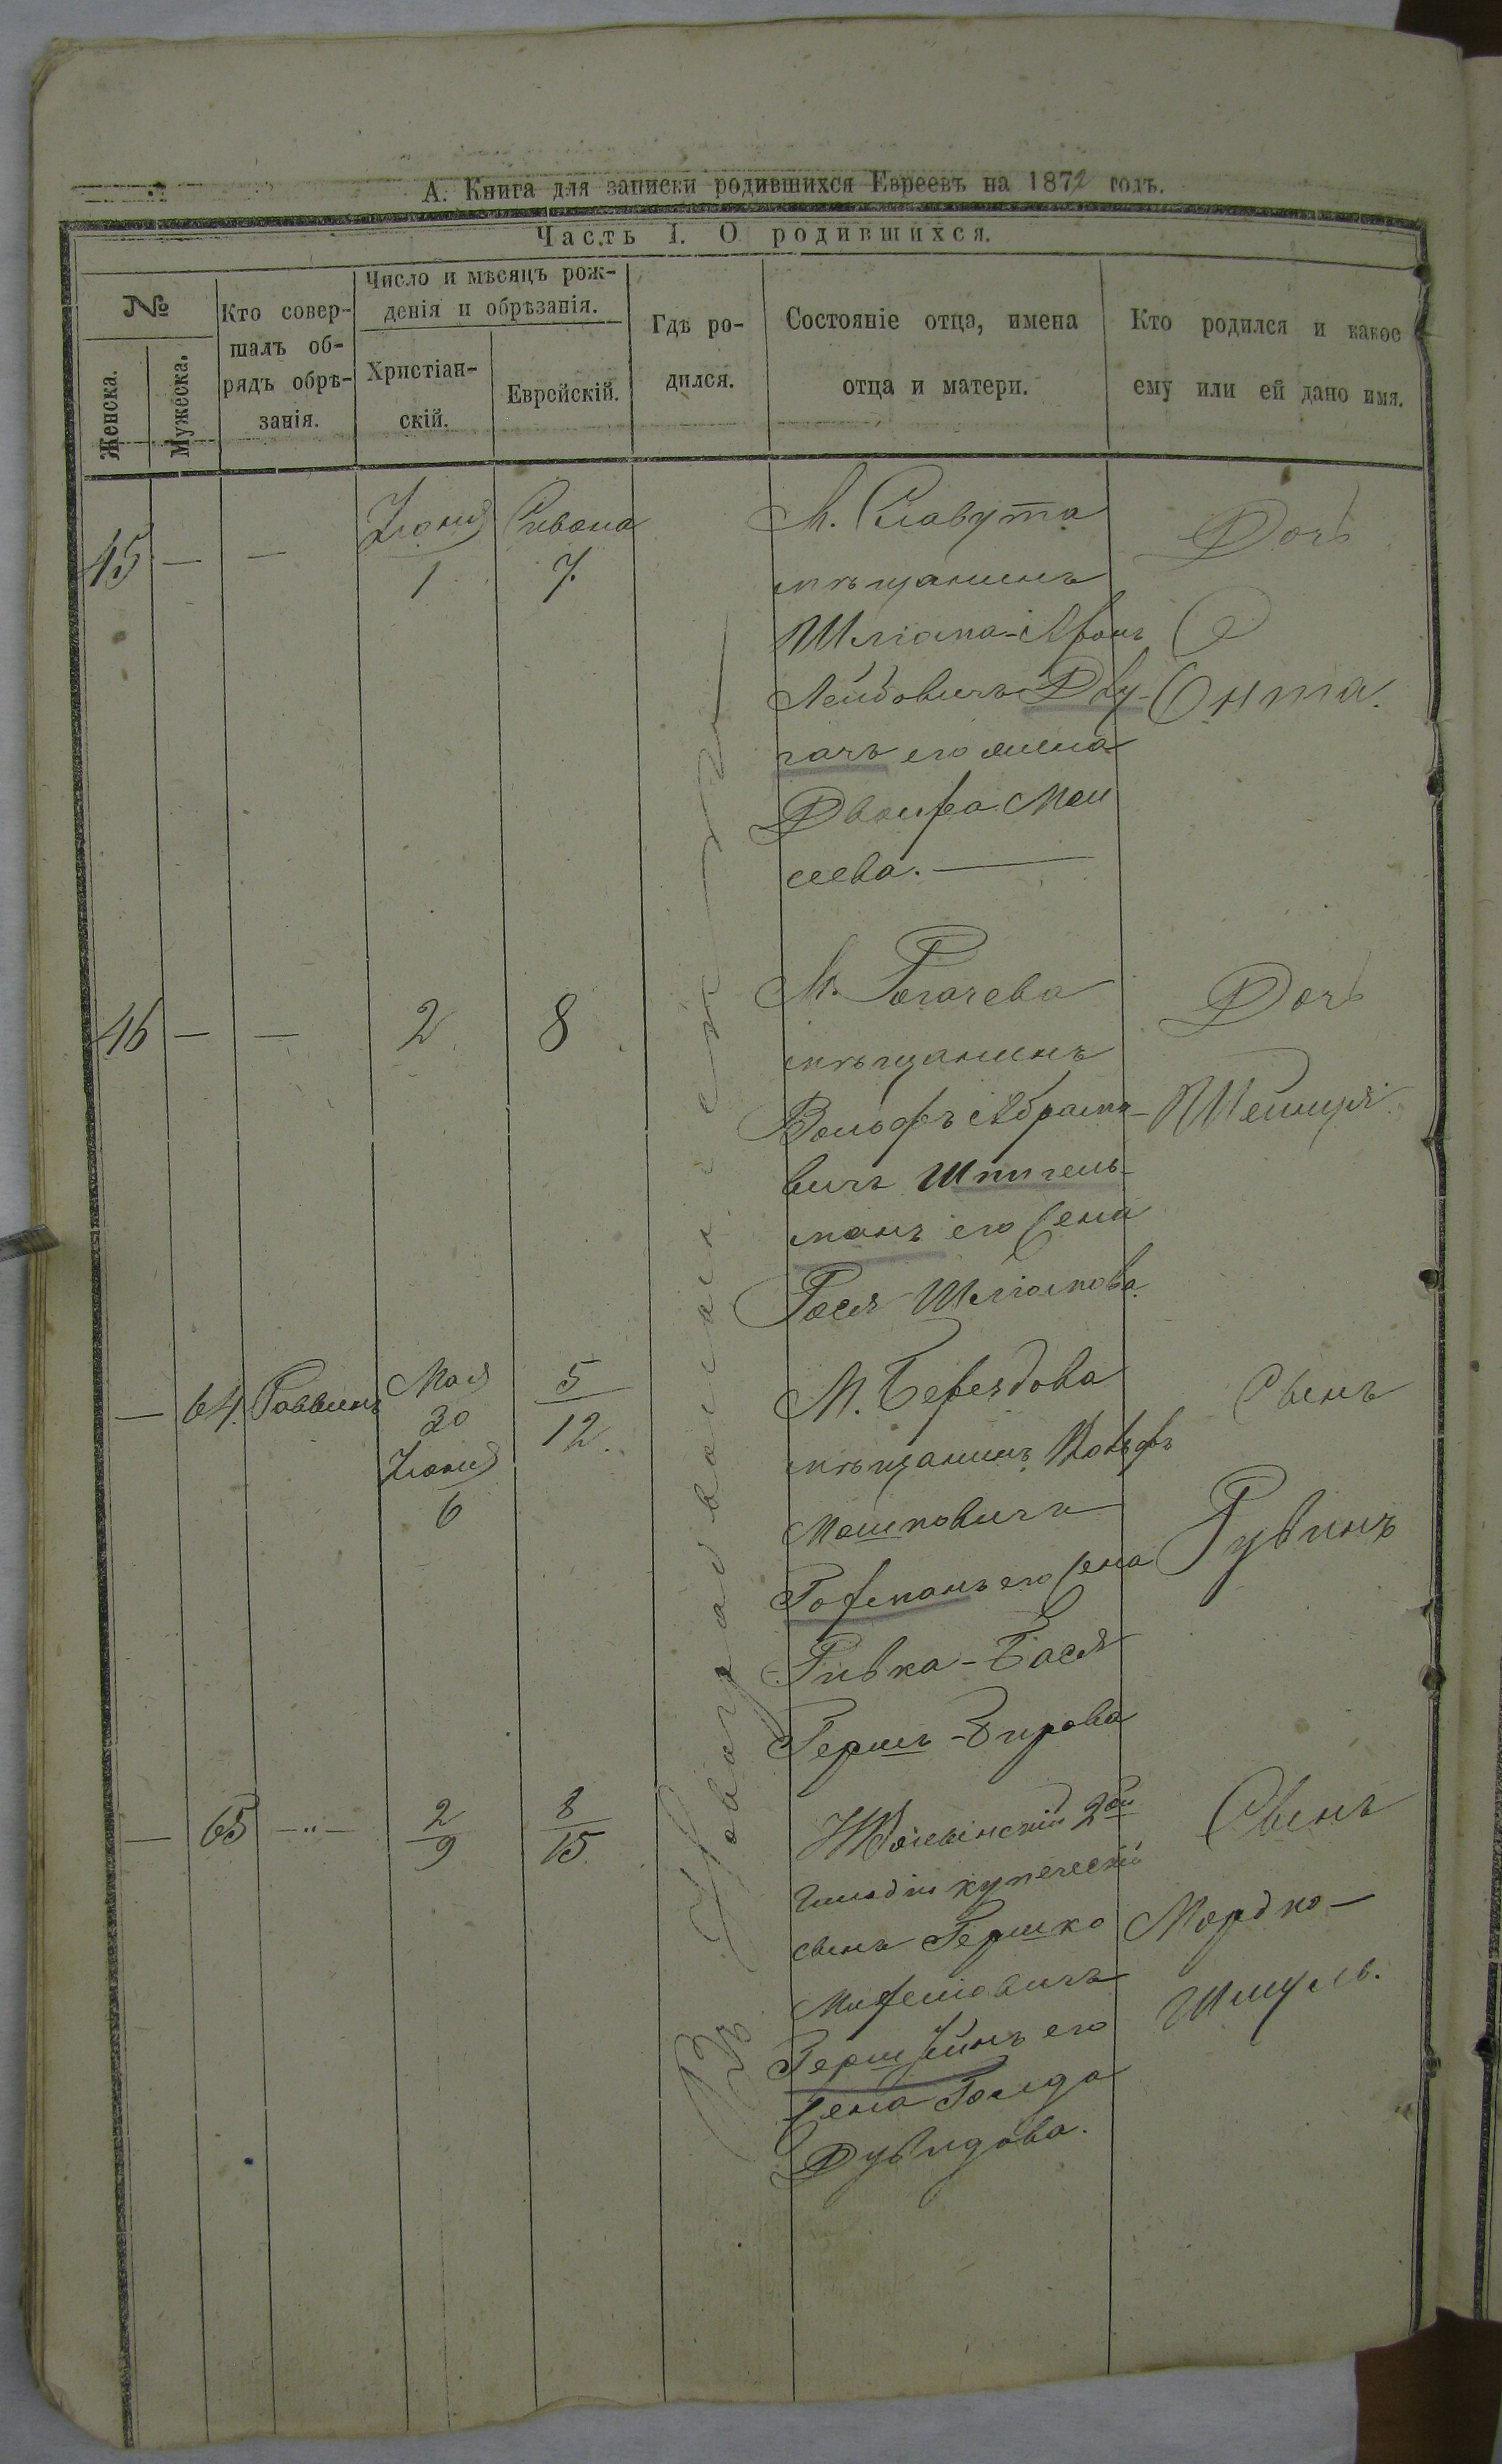 А. Книга для записки родившихся Евреевъ на 1872 годъ.
Часть I. О родившихся.
№
Женска.
Мужеска.
Кто совер-
шалъ об-
рядъ обрѣ-
занія.
Число и мѣсяцъ рож-
денія и обрѣзанія.
Христіан-
скій.
Еврейскій.
Гдѣ ро-
дился.
Состояніе отца, имена
отца и матери.
Кто родился и какое
ему или ей дано имя.
Въ Новоградволынскѣ
45 — — Іюня 1 Сивана 7.
М. Славута
мѣщанинъ
Шліома-Аронъ
Лейбовичъ Дву-
гачъ его жена
Двойра Мои
сеева.
Дочь
Ента.
46 — — 2 8
М. Рогачева
мѣщанинъ
Вольфъ Абрамо-
вичъ Шпигель-
манъ его жена
Рося Шліомова
Дочь
— 64. Раввинъ Мая 30 Іюня 6 5 12.
М. Берездова
мѣщанинъ Вольфъ
Мошковичъ
Гофманъ его жена
Ривка-Бася
Гершъ-Берова
Сынъ
Рувинъ
— 65 —"— 2 9 8 15
Волынскій 2ой
гильдіи купеческій
сынъ Гершко
его
жена Голда
Дувидова.
Сынъ
Мордко-
Шмуль.